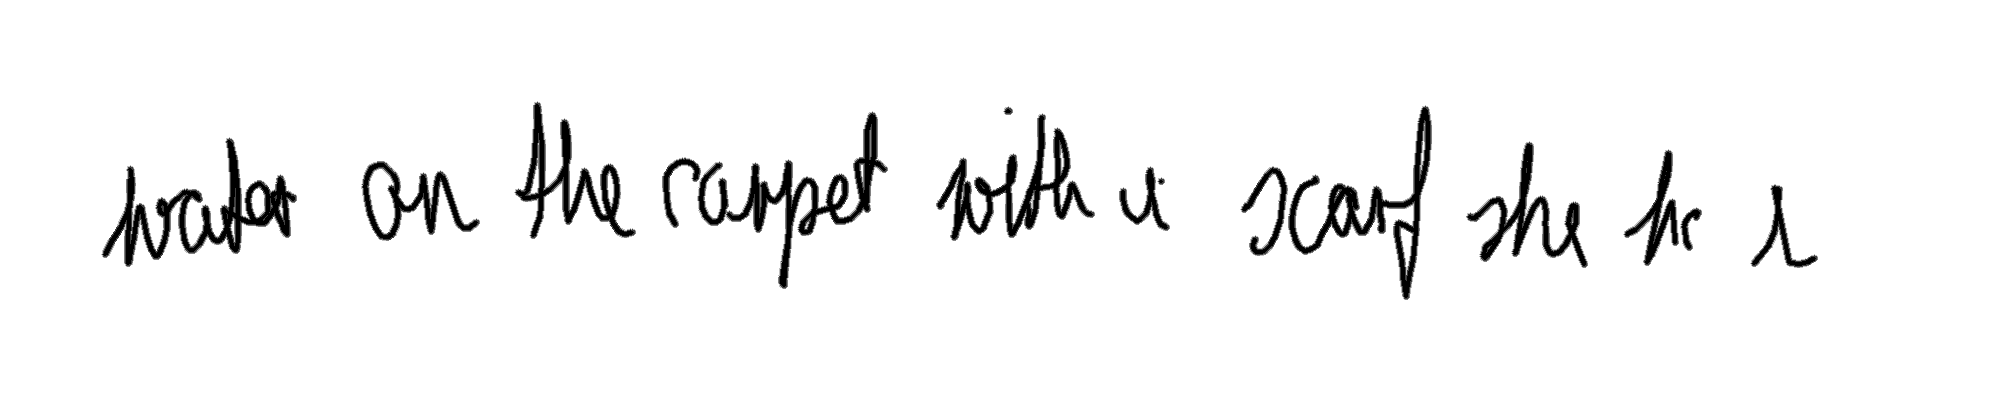 water on the carpet with a scarf she